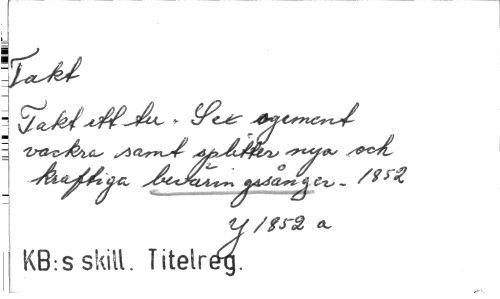 Takt
Takt ett tu. Sex ogement
vackra samt splitter nya och
kraftiga beväringssånger. 1852
Y 1852 a
KB:s skill. Titelreg.